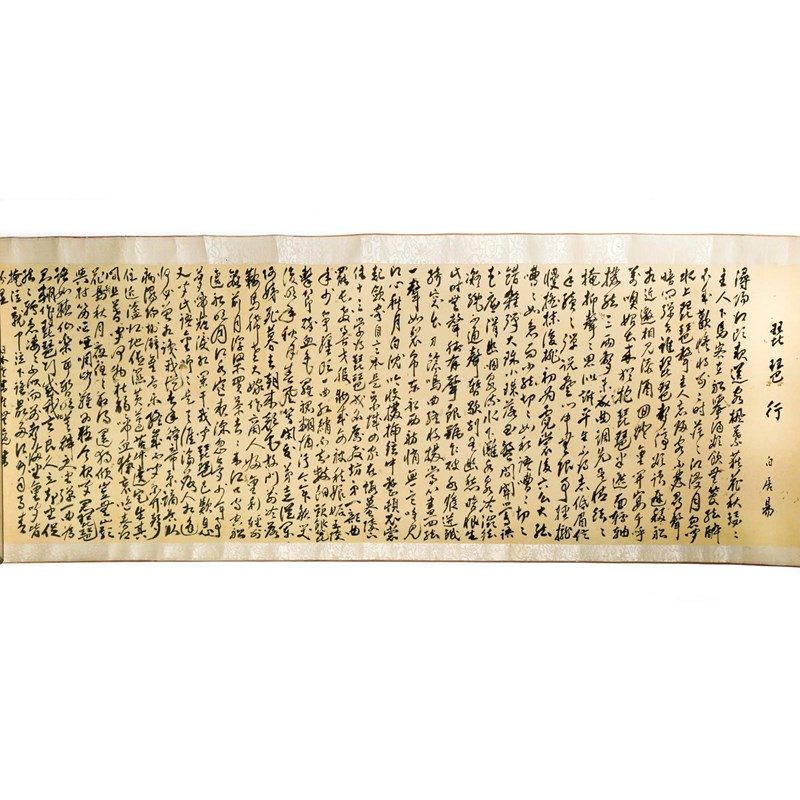 琵琶行
白居易
潯陽江頭夜送客楓葉荻花秋瑟〻
主人下馬客在船舉酒欲飲無管絃醉
不成歡慘將別別時茫〻江浸月忽聞
水上琵琶聲主人忘歸客不發尋聲
暗問彈者誰琵琶聲停欲語遲移船
相近邀相見添酒回燈重開宴千呼
萬喚始出來猶抱琵琶半遮面轉軸
撥絃三兩聲未成曲調先有情絃〻
掩抑聲〻思似訴平生不得志低眉信
手續〻彈說盡心中無限事輕攏
慢撚抹復挑初為霓裳後六么大絃
嘈〻如急雨小絃切〻如私語嘈〻切〻
錯雜彈大珠小珠落玉盤間關鶯語
花底滑幽咽泉流冰下灘冰泉冷澀絃
凝絕凝絕不通聲暫歇別有幽愁暗恨生
此時無聲勝有聲銀瓶乍破水漿迸鐵
騎突出刀鎗鳴曲終收撥當心畫四絃
一聲如裂帛東船西舫悄無言唯見
江心秋月白沈吟收撥插絃中整頓衣裳
起斂容自言本是京城女家在蝦蟆陵下
住十三學得琵琶成名屬教坊第一部曲
罷曾教善才伏妝成每被秋娘妒五陵
年少爭纏頭一曲紅綃不知數鈿頭銀篦
擊節碎血色羅裙翻酒污今年歡笑
復明年秋月春風等閑度弟走從軍
阿姨死暮去朝來顏色故門前冷落
鞍馬稀老大嫁作商人婦商人重利輕別
離前月浮梁買茶去去來江口守空船
遶船明月江水寒夜深忽夢少年事
夢啼妝淚紅闌干我聞琵琶已歎息
又聞此語重唧〻同是天涯淪落人相逢
何必曾相識我從去年辭帝京謫居臥
病潯陽城潯陽地僻無音樂終歲不聞絲竹聲
住近湓江地低濕黃蘆苦竹遶宅生其
間旦暮聞何物杜鵑啼血猿哀鳴春江
花朝秋月夜往〻取酒還獨傾豈無山歌
與村笛嘔啞嘲哳難為聽今夜聞君琵琶
語如聽仙樂耳暫明莫辭更坐彈一曲為
君翻作琵琶行感我此言良久立卻坐促
絃〻轉急淒〻不似向前聲滿座重聞皆
掩泣就中泣下誰最多江州司馬青
衫濕